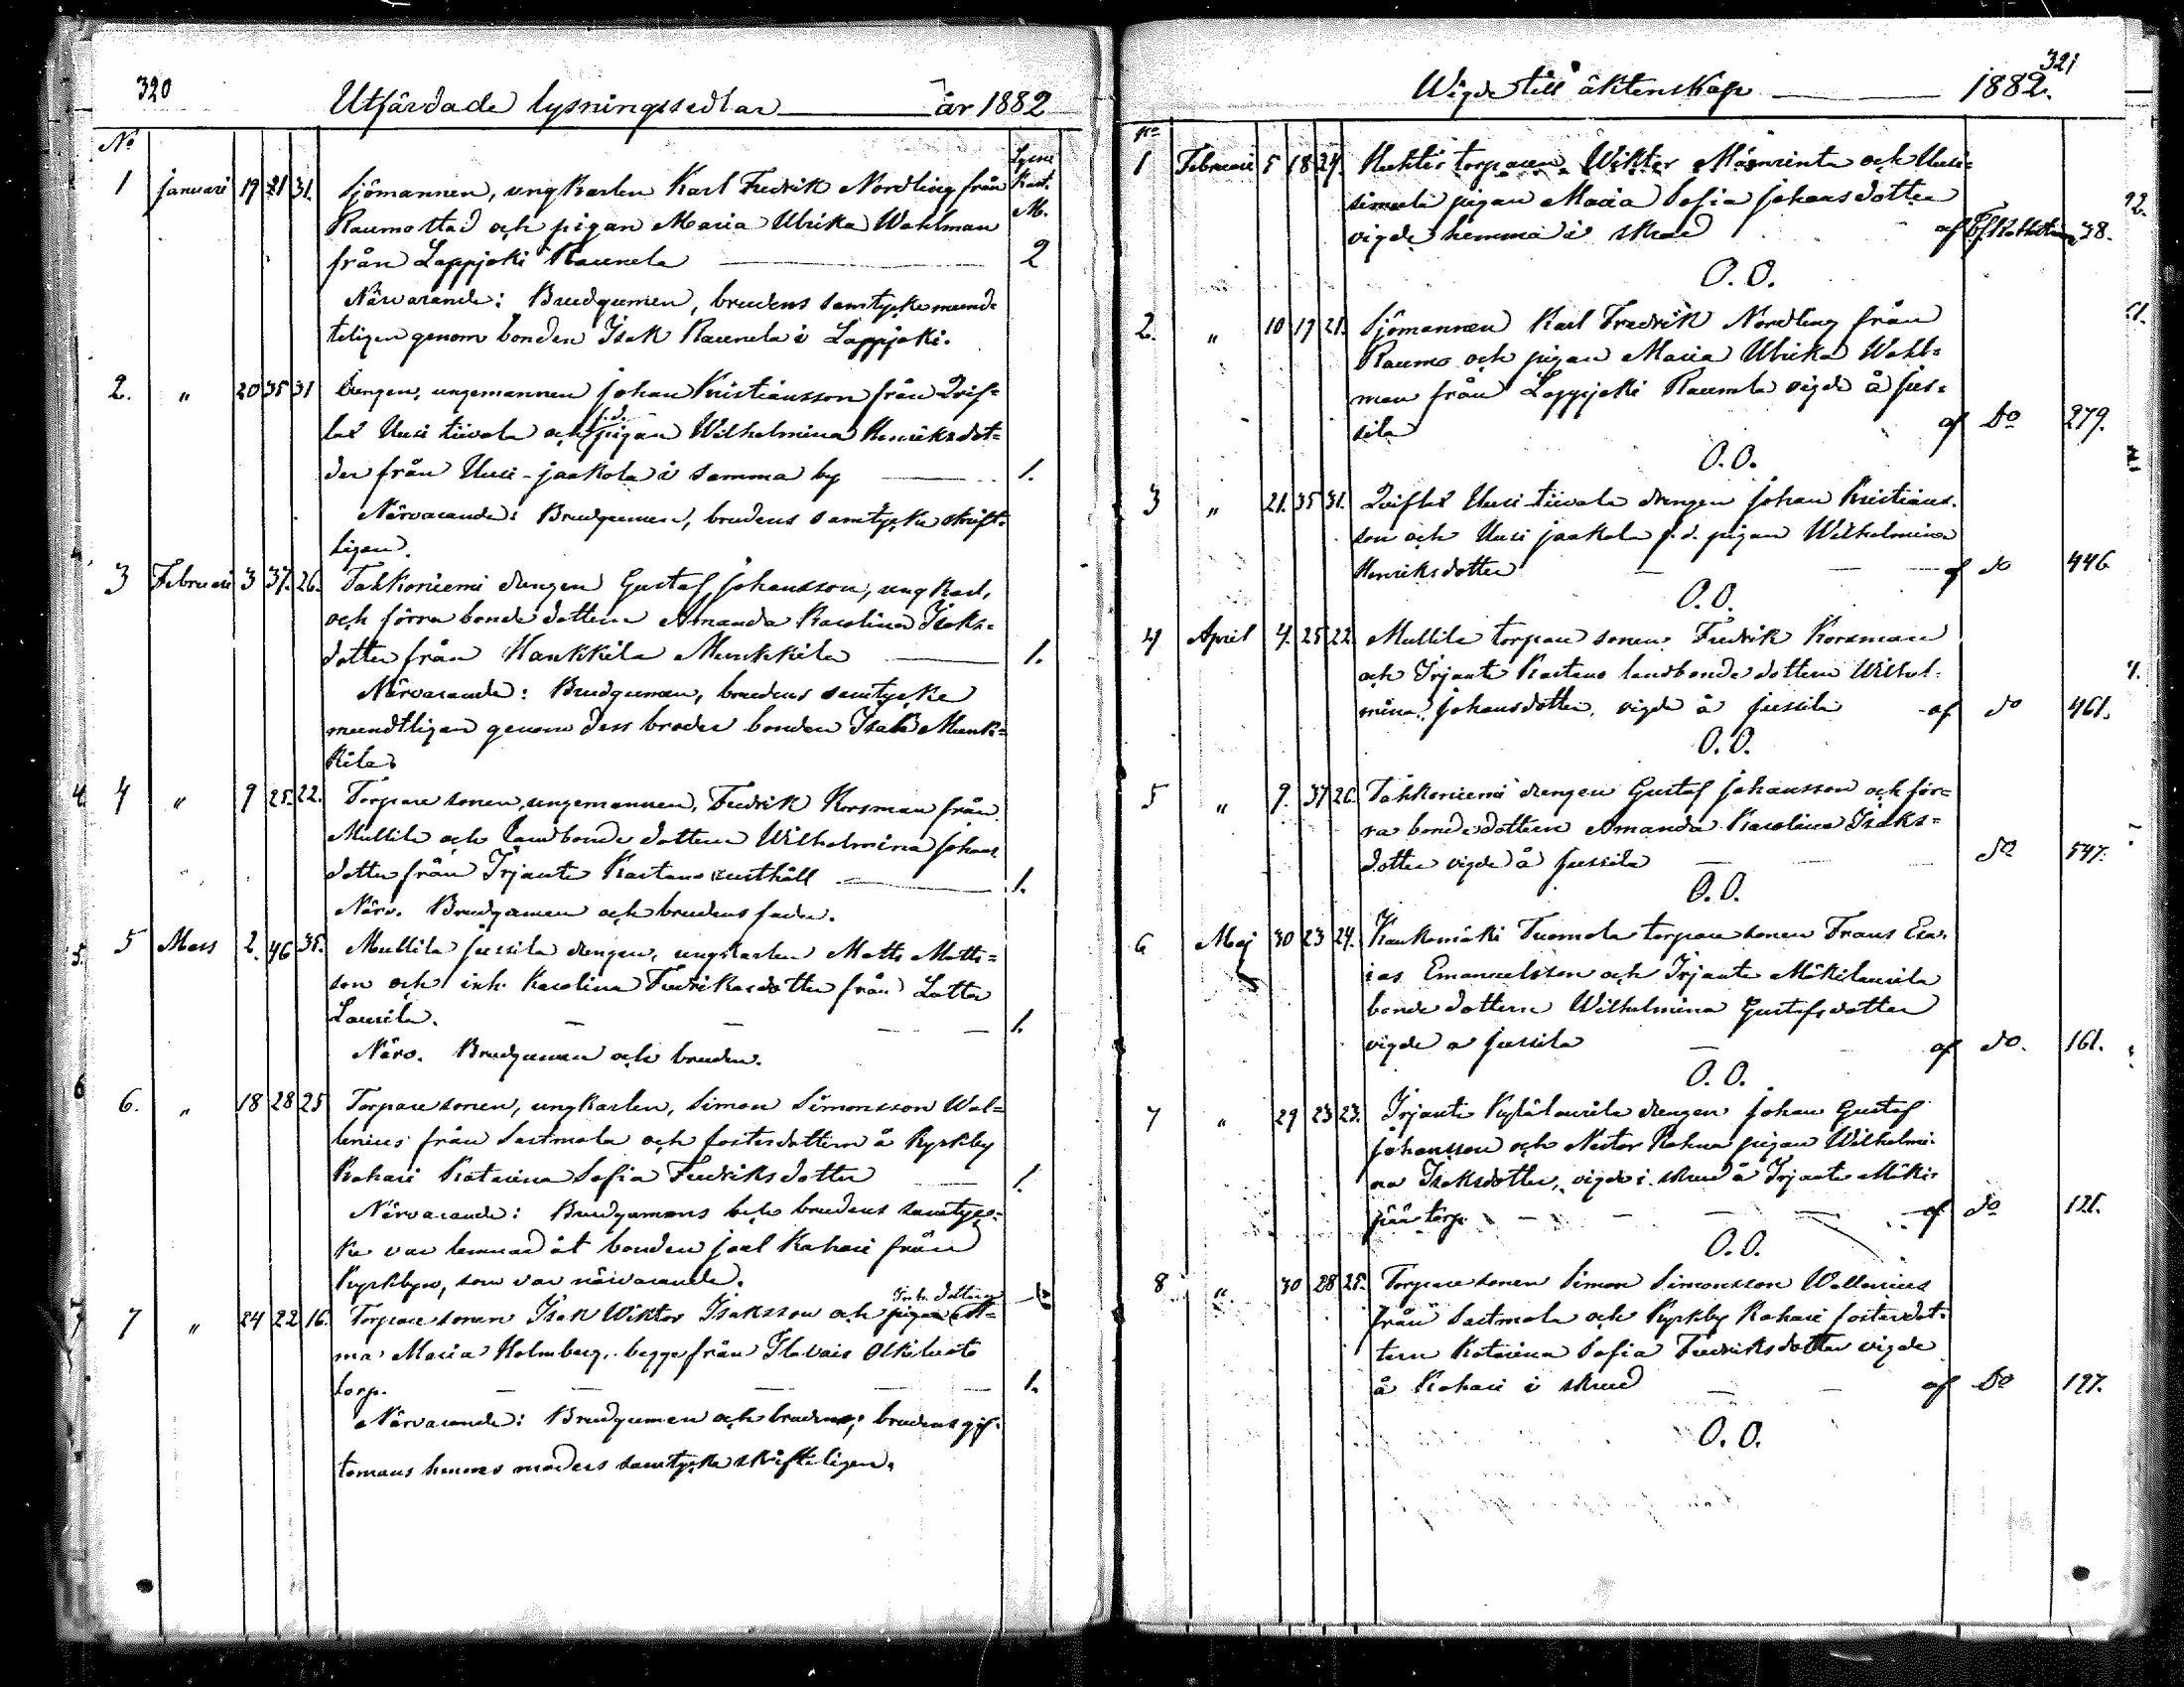 320
Utfärdade lysningssedlar år 1882
No
Lysn
Kart.
M.
1 Januari 19 21 31. Sjömannen, ungkarlen Karl Fredrik Nordling från
Raumo stad och pigan Maria Ulrika Wahlman
från Lappjoki Raunela 2
Närvarande: Brudgumen, brudens samtycke mund-
teligen genom bonden Isak Raunela i Lappjoki.
2. " 20 35 31 Drengen, ungemannen Johan Kristiansson från
Uusi tiivola och f.d. pigan Wilhelmina Henriksdot-
der från Uusi-jaakola i samma by 1.
Närvarande: Brudgumen, brudens samtycke skrift-
ligen.
3 Februari 3 37. 26. Tahkoniemi drengen Gustaf Johansson, ungkarl,
och förra bonde dottern Amanda Karolina Isaks-
dotter från Hankkila Munkkila 1.
Närvarande: Brudgumen, brudens samtycke
mundtligen genom dess broder bonden Isak Munk-
kila
4 " 9 25. 22. Torpare sonen, ungemannen, Fredrik Korsman från
Mullila och landbonde dottern Wilhelmina Johans
dotter från Irjante Kartano rusthåll 1.
Närv. Brudgumen och brudens fader.
5 Mars 2. 46 35. Mullila Jussila drengen, ungkarlen Matts Matts-
son och inh. Karolina Fredriksdotter från
Laurila. 1.
Närv. Brudgumen och bruden.
6. " 18 28 25 Torpare sonen, ungkarlen, Simon Simonsson Wal-
lenius från Sastmola och fosterdottern å Kyrkby
Kahari Katarina Sofia Fredriksdotter 1.
Närvarande: Brudgumens och brudens samtyc-
ke var lemnad åt bonden Joel Kahari från
Kyrkbyn, som var närvarande.
7 " 24 22 16. Torpare sonen Isak Wiktor Isaksson och pigan
ma Maria Holmberg, begge från Ilavais Olkiluoto
torp. 1.
Närvarande: Brudgumen och bruden; brudens gif-
tomans hennes moders samtycke skrifteligen.
321
Wigde till äktenskap 1882.
No
1 Februari 5 18 24. torparen Wiktor och Uusi-
simula pigan Maria Sofia Johansdotter
vigde hemma i skrud af 38.
O. O.
2. " 10 19 21. Sjömannen Karl Fredrik Nordling från
Raumo och pigan Maria Ulrika Wahl-
man från Lappjoki Raunela vigde å Jus-
sila af Do 279.
O. O.
3 " 21. 35 31. Uusi-tiivola drengen Johan Kristians-
son och Uusi jaakola f.d. pigan Wilhelmina
Henriksdotter af do 446
O. O.
4 April 4. 25 22. Mullila torpare sonen Fredrik Korsman
och Irjante Kartano landbonde dottern Wilhel-
mina Johansdotter, vigde å Jussila af do 461.
O. O.
5 " 9. 37 26. Tahkoniemi drengen Gustaf Johansson och för-
ra bondedottern Amanda Karolina Isaks-
dotter vigde å Jussila do 547.
O. O.
6 Maj 30 23 24. Kaukomäki Tuomola torpare sonen Frans Esa-
ias Emanuelsson och Irjante Mäkilaurila
bonde dottern Wilhelmina Gustafsdotter
vigde å Jussila af do. 161.
O. O.
7 " 29 23 23. Irjante Kylälaurila drengen Johan Gustaf
Johansson och Nestor Rohua pigan Wilhelmi-
na Isaksdotter, vigde i skrud å Irjante Mäki-
pää torp. af do 121.
O. O.
8 " 30 28 25. Torpare sonen Simon Simonsson Wallenius
från Sastmola och Kyrkby Kahari fosterdot-
tern Katarina Sofia Fredriksdotter vigde
å Kahari i skrud af Do 197.
O. O.